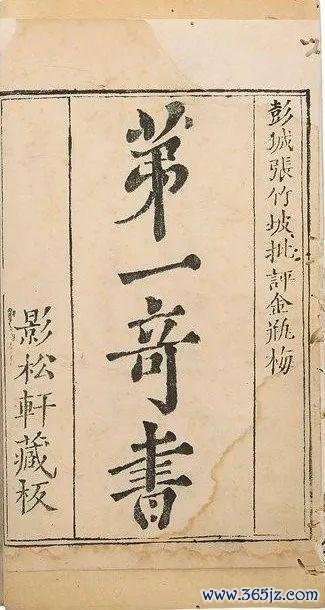 彭城張竹坡批評金瓶梅
第一奇書
影松軒藏板
www.365jz.com